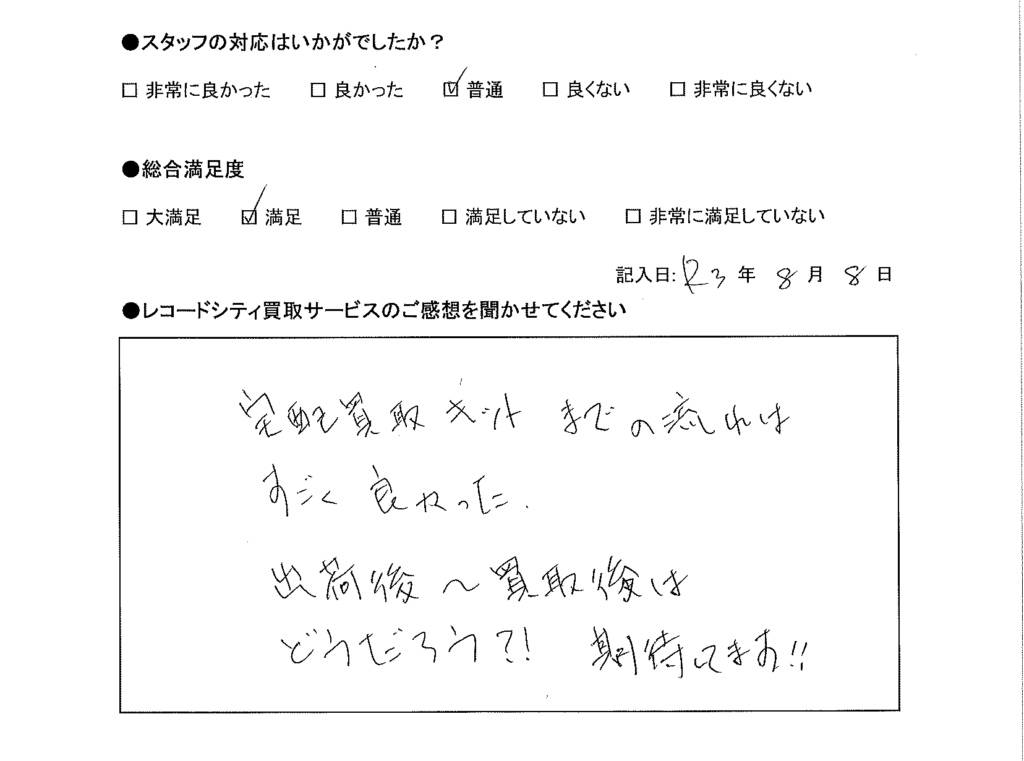 ●スタッフの対応はいかがでしたか？
□ 非常に良かった □ 良かった ☑ 普通 □ 良くない □ 非常に良くない
●総合満足度
□ 大満足 ☑ 満足 □ 普通 □ 満足していない □ 非常に満足していない
記入日: R3 年 8 月 8 日
●レコードシティ買取サービスのご感想を聞かせてください
宅配買取キットまでの流れは
すごく良かった.
出荷後〜買取後は
どうだろう?! 期待してます!!